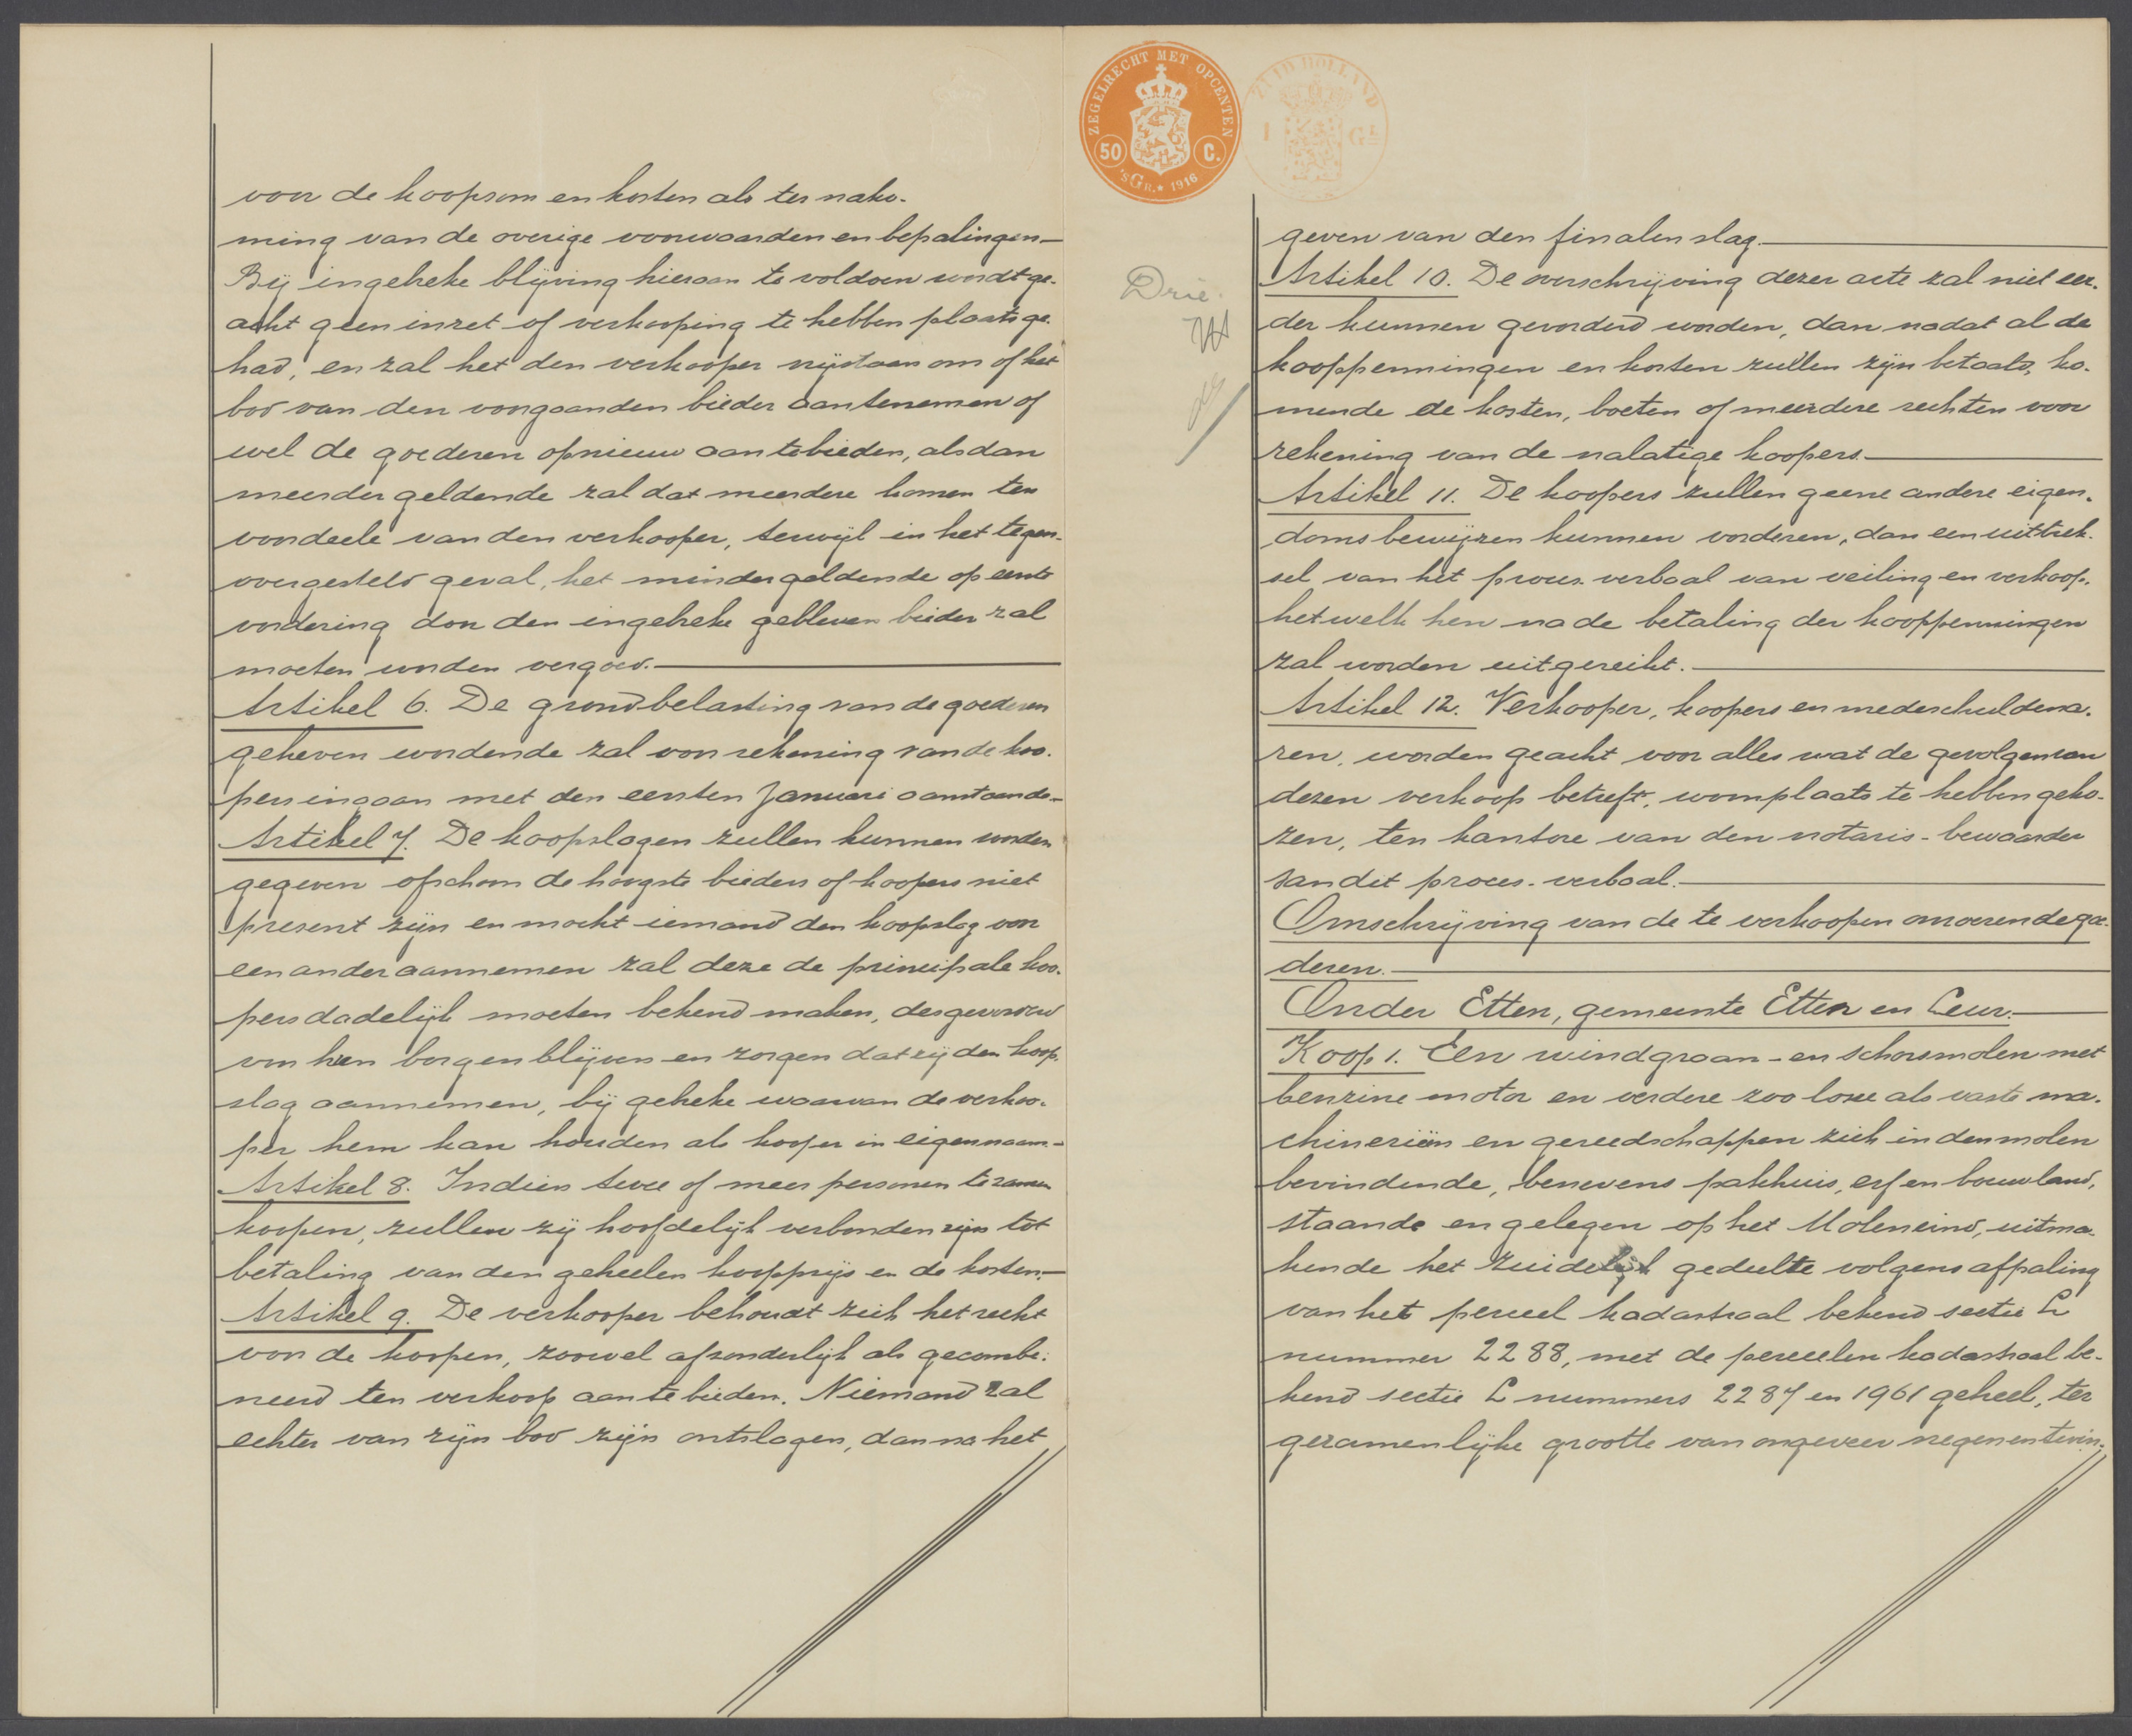 voor de koopsom en kosten als ter nako-
ming van de overige voorwaarden en bepalingen
Bij ingebreke blijving hieraan te voldoen wordt ge-
acht geen inzet of verkooping te hebben plaats ge-
had, en zal het den verkooper vrijstaan om of het
bod van den voorgaanden bieder aantenemen of
wel de goederen opnieuw aantebieden, alsdan
meerder geldende zal dat meerdere komen ten
voordeele van den verkooper, terwijl in het tegen-
overgesteld geval, het minder geldende op eerste
vordering door den ingebreke gebleven bieder zal
moeten worden vergoed.
Artikel 6. De grondbelasting van de goederen
geheven wordende zal voor rekening van de koo-
pers ingaan met den eersten Januari aanstaande
Artikel 7. De koopslagen zullen kunnen worden
gegeven ofschoon de hoogste bieders of koopers niet
present zijn en mocht iemand den koopslag voor
een ander aannemen zal deze de principale koo-
pers dadelijk moeten bekend maken, desgevorderd
voor hen borgen blijven en zorgen dat zij den koop-
slag aannemen, bij gebreke waarvan de verkoo-
per hem kan houden als kooper in eigen naam.
Artikel 8. Indien twee of meer personen te zamen
koopen, zullen zij hoofdelijk verbonden zijn tot
betaling van den geheelen koopprijs en de kosten.
Artikel 9. De verkooper behoudt zich het recht
voor de koopen, zoowel afzonderlijk als gecombi-
neerd ten verkoop aan te bieden. Niemand zal
echter van zijn bod zijn ontslagen, dan na het
ZEGELRECHT MET OPCENTEN
50 C.
'sGR. 1916
ZUID HOLLAND
1 GL
Drie.
geven van den finalen slag.
Artikel 10. De overschrijving dezer acte zal niet eer-
der kunnen gevorderd worden, dan nadat al de
kooppenningen en kosten zullen zijn betaald, ko-
mende de kosten, boeten of meerdere rechten voor
rekening van de nalatige koopers.
Artikel 11. De koopers zullen geene andere eigen-
doms bewijzen kunnen vorderen, dan een uittrek-
sel van het proces verbaal van veiling en verkoop,
hetwelk hen na de betaling der kooppenningen
zal worden uitgereikt.
Artikel 12. Verkooper, koopers en medeschuldena-
ren, worden geacht voor alles wat de gevolgen van
dezen verkoop betreft, woonplaats te hebben geko-
zen, ten kantore van den notaris-bewaarder
van dit proces-verbaal.
Omschrijving van de te verkoopen onroerende goe-
deren.
Onder Etten, gemeente Etten en Leur.
Koop 1. Een windgraan- en schorsmolen met
benzine motor en verdere zoo losse als vaste ma-
chineriën en gereedschappen zich in den molen
bevindende, benevens pakhuis, erf en bouwland,
staande en gelegen op het Moleneind, uitma-
kende het zuidelijk gedeelte volgens afpaling
van het perceel kadastraal bekend sectie L
nummer 2288, met de perceelen kadastraal be-
kend sectie L nummers 2287 en 1961 geheel, ter
gezamenlijke grootte van ongeveer negenentwin-